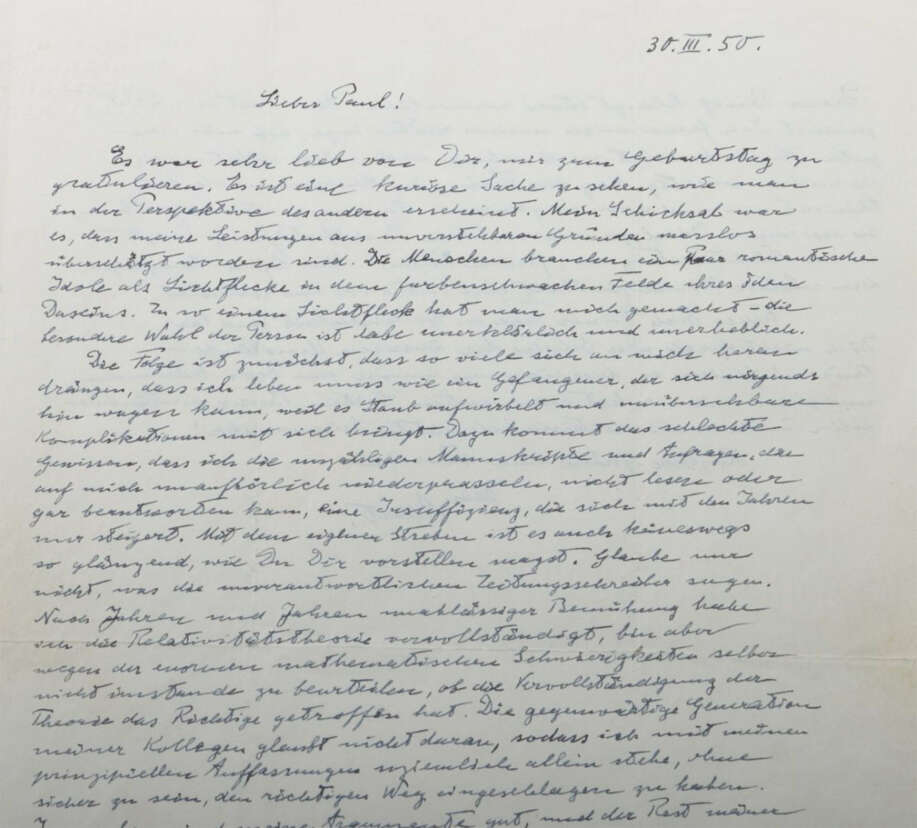 30.III.50.
Lieber Paul!
Es war sehr lieb von Dir, mir zum Geburtstag zu
gratulieren. Es ist eine kuriose Sache zu sehen, wie man
in der Perspektive des andern erscheint. Mein Schicksal war
es, dass meine Leistungen aus unverstehbaren Gründen masslos
überschätzt worden sind. Die Menschen brauchen ein Paar romantische
Idole als Lichtflecke in dem farbenschwachen Felde ihres öden
Daseins. Zu so einem Lichtfleck hat man mich gemacht – die
besondere Wahl der Person ist dabei unerklärlich und unerheblich.
Die Folge ist zunächst, dass so viele sich an mich heran
drängen, dass ich leben muss wie ein Gefangener, der sich nirgends
hin wagen kann, weil es Staub aufwirbelt und unübersehbare
Komplikationen mit sich bringt. Dazu kommt das schlechte
Gewissen, dass ich die unzähligen Manuskripte und Anfragen, die
auf mich unaufhörlich niederprasseln, nicht lesen oder
gar beantworten kann, eine Insuffizienz, die sich mit den Jahren
nur steigert. Mit dem eigenen Streben ist es auch keineswegs
so glänzend, wie Du Dir vorstellen magst. Glaube nur
nicht, was die unverantwortlichen Zeitungsschreiber sagen.
Nach Jahren und Jahren unablässiger Bemühung habe
ich die Relativitätstheorie vervollständigt, bin aber
wegen der enormen mathematischen Schwierigkeiten selber
nicht imstande zu beurteilen, ob die Vervollständigung der
Theorie das Richtige getroffen hat. Die gegenwärtige Generation
meiner Kollegen glaubt nicht daran, sodass ich mit meinen
prinzipiellen Auffassungen ziemlich allein stehe, ohne
sicher zu sein, den richtigen Weg eingeschlagen zu haben.
meine Argumente gut, und der Rest meiner